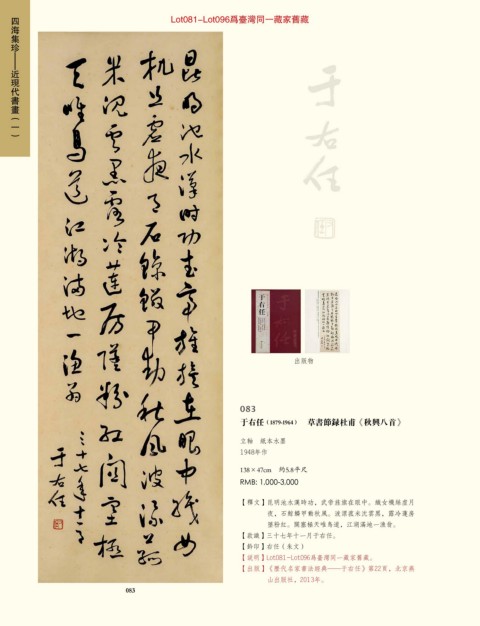 Lot081-Lot096爲臺灣同一藏家舊藏
四海集珍——近現代書畫（一）
昆明池水漢時功武帝旌旗在眼中織女
机絲虛夜月石鯨鱗甲動秋風波漂菰
米沈雲黑露冷蓮房墜粉紅關塞極
天唯鳥道江湖滿地一漁翁
三十七年十一月
于右任
083
于右任
于右任
出版物
083
于右任（1879-1964） 草書節録杜甫《秋興八首》
立軸 紙本水墨
1948年作
138×47cm 約5.8平尺
RMB: 1,000-3,000
【釋文】昆明池水漢時功，武帝旌旗在眼中。織女機絲虛月
夜，石鯨鱗甲動秋風。波漂菰米沈雲黑，露冷蓮房
墜粉紅。關塞極天唯鳥道，江湖滿地一漁翁。
【款識】三十七年十一月于右任。
【鈐印】右任（朱文）
【説明】Lot081-Lot096爲臺灣同一藏家舊藏。
【出版】《歷代名家書法經典——于右任》第22頁，北京燕
山出版社，2013年。